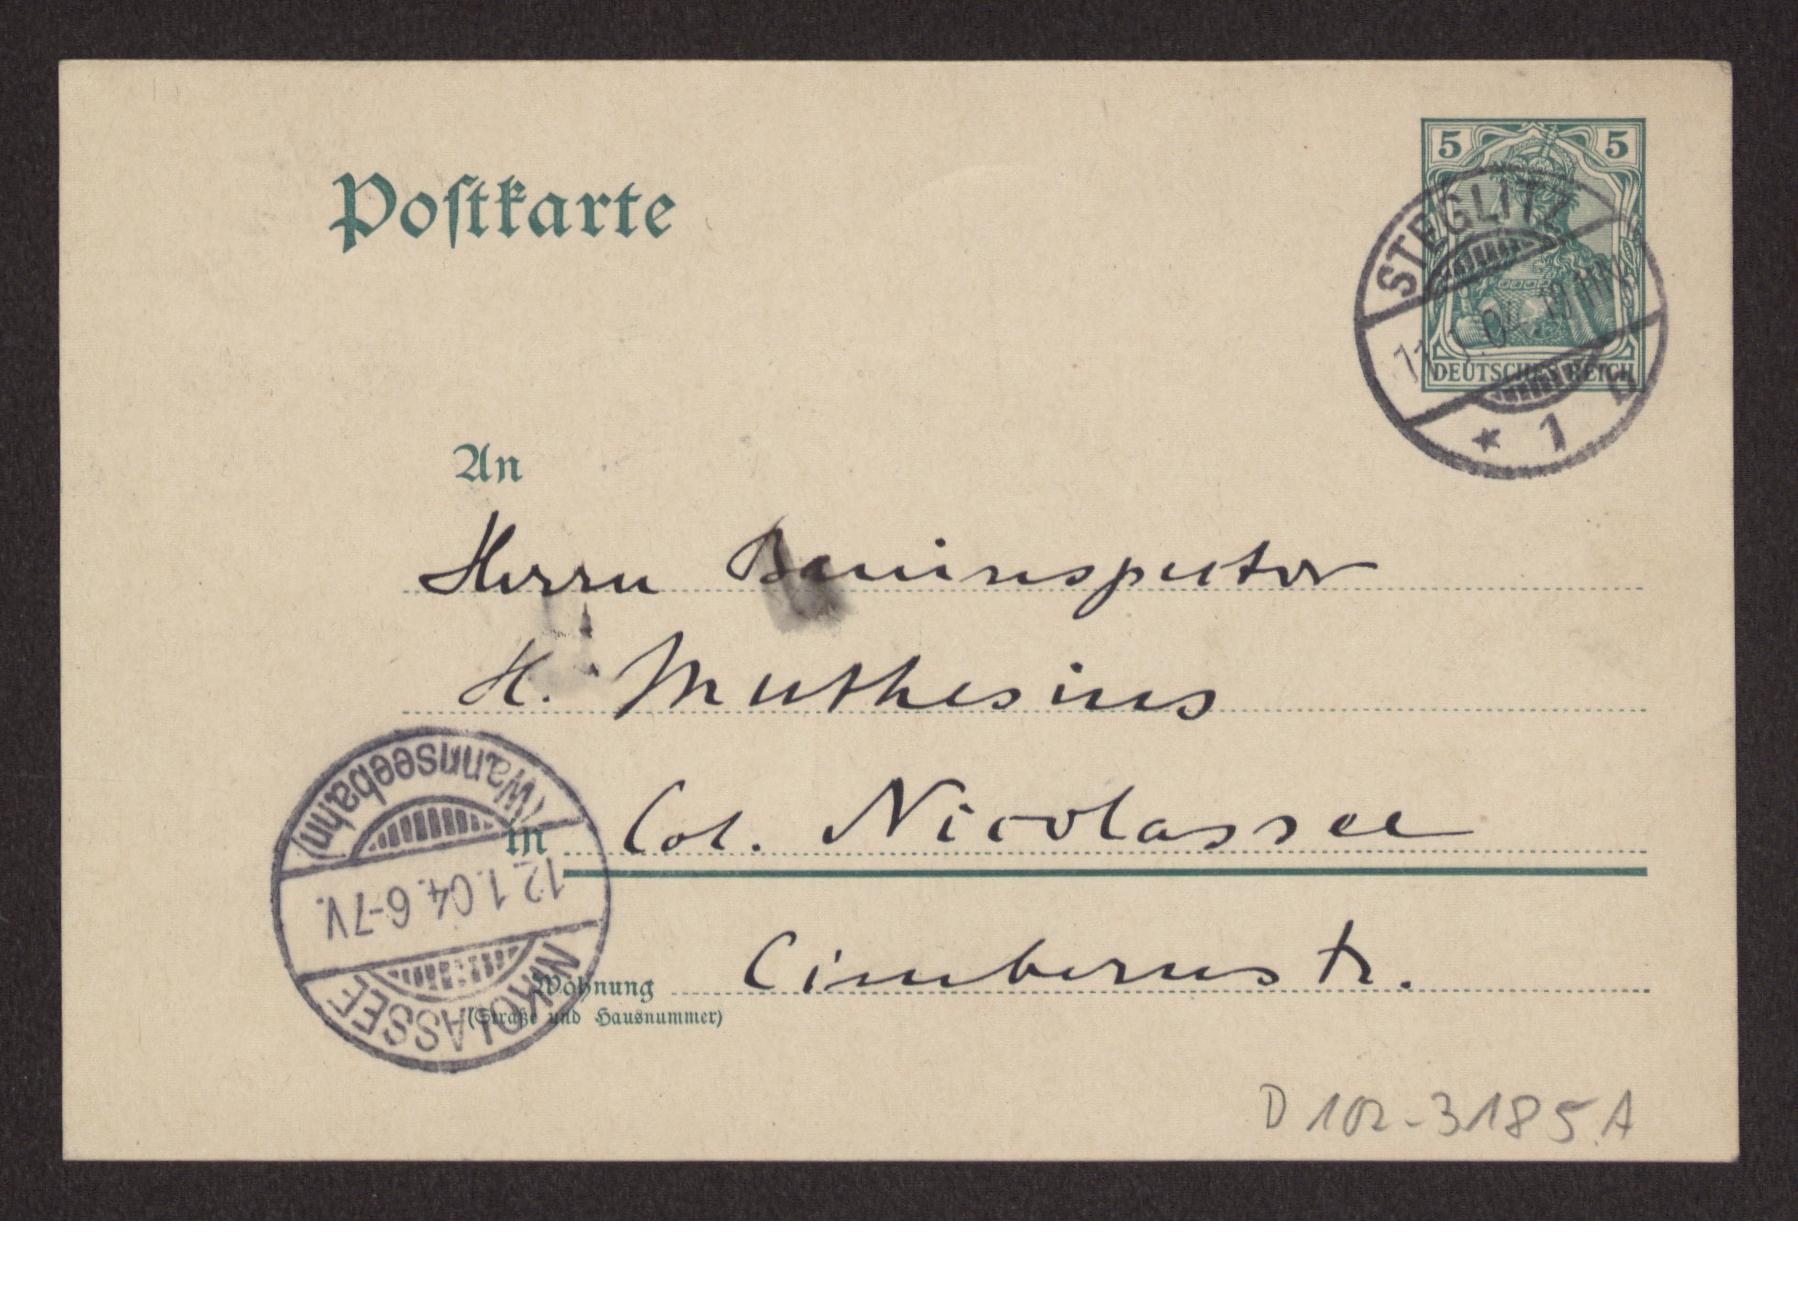 Postkarte
5 5
DEUTSCHES REICH
STEGLITZ
* 1
An
Herrn Bauinspector
H. Muthesius
in Col. Nicolassee
Wohnung Cimbernstr.
(Straße und Hausnummer)
NIKOLASSEE
12.1.04. 6-7V.
(Wannseebahn)
D 102-3185.A